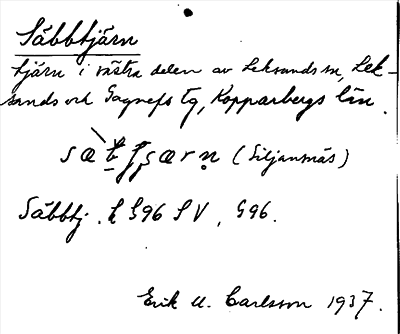 Säbbtjärn
tjärn i västra delen av Leksands sn, Lek-
sands och Gagnefs tg, Kopparbergs län.
(Siljansnäs)
Säbbtj. k S96 SV, S96.
Erik U. Carlsson 1937.